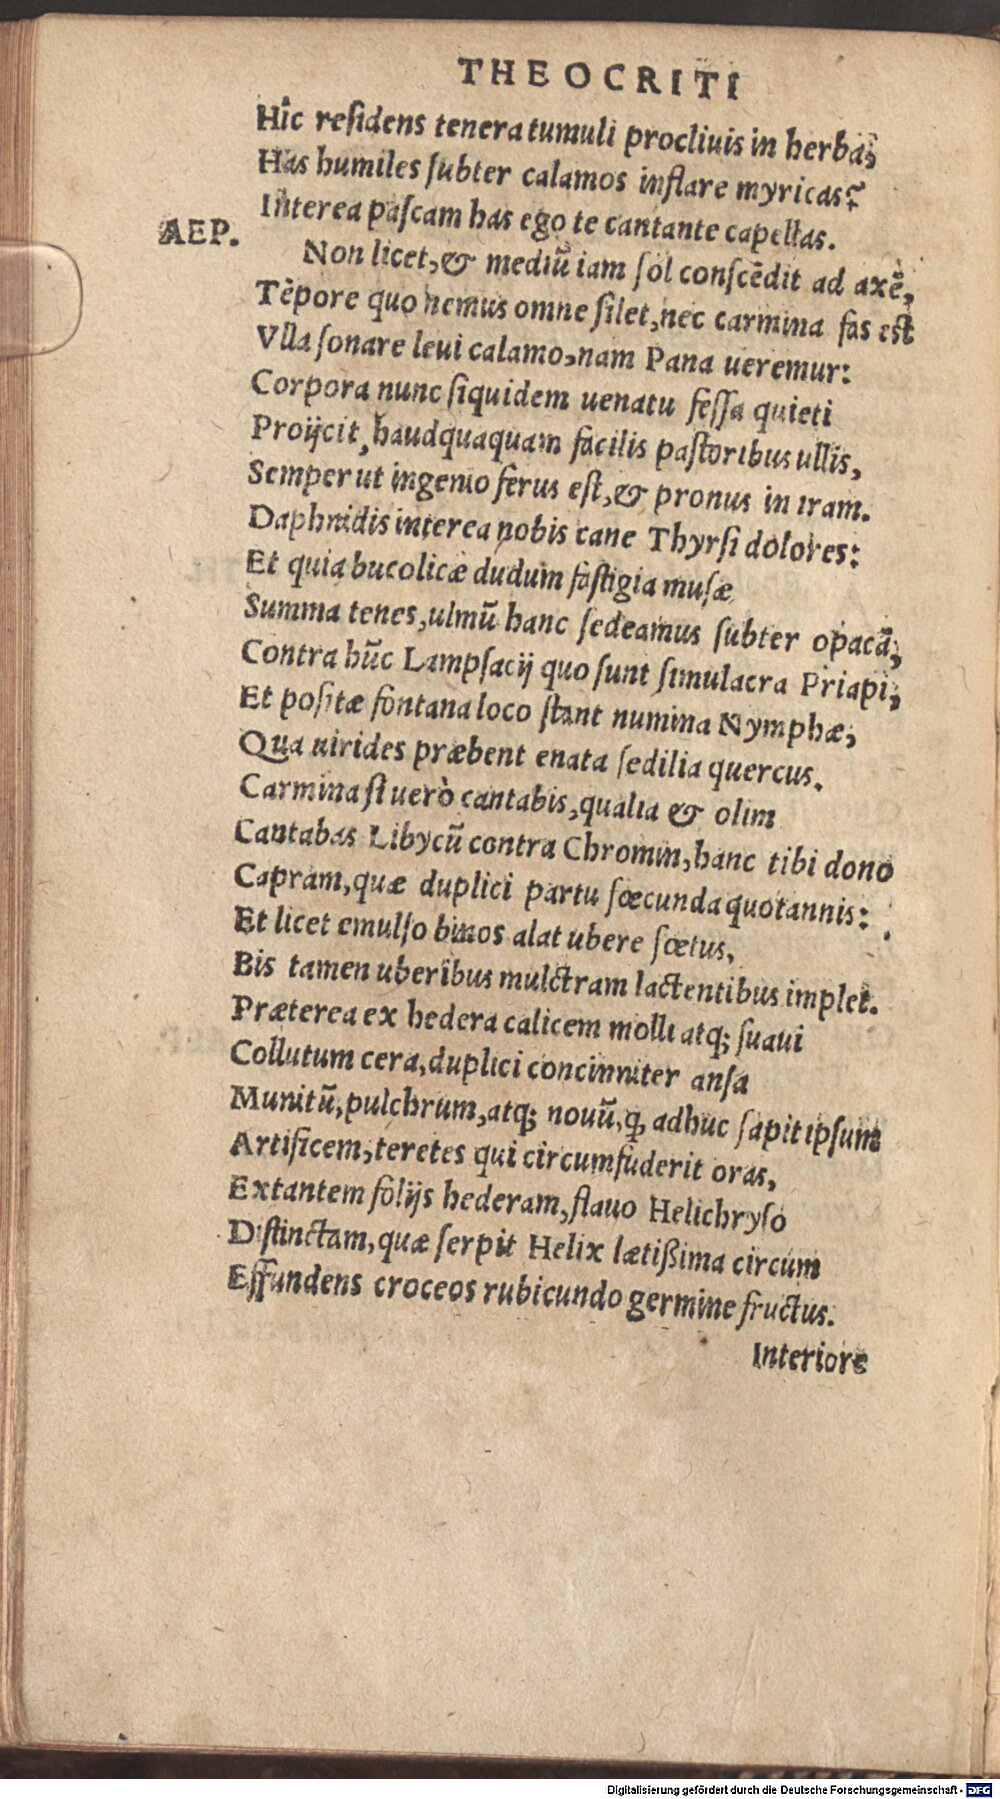 THEOCRITI
Hîc reſidens tenera tumuli procliuis in herba,
Has humiles ſubter calamos inflare myricas?
Interea paſcam has ego te cantante capellas.
AEP. Non licet, & mediū iam ſol conſcēdit ad axē,
Tēpore quo nemus omne ſilet, nec carmina fas est
Vlla ſonare leui calamo, nam Pana ueremur:
Corpora nunc ſiquidem uenatu feſſa quieti
Proijcit, haudquaquam facilis paſtoribus ullis,
Semper ut ingenio ferus eſt, & pronus in iram.
Daphnidis interea nobis cane Thyrſi dolores:
Et quia bucolicæ dudum faſtigia muſæ
Summa tenes, ulmū hanc ſedeamus ſubter opacā,
Contra hūc Lampſacij quo ſunt ſimulacra Priapi,
Et poſitæ fontana loco ſtant numina Nymphæ,
Qua uirides præbent enata ſedilia quercus.
Carmina ſi uerò cantabis, qualia & olim
Cantabas Libycū contra Chromin, hanc tibi dono
Capram, quæ duplici partu fœcunda quotannis:
Et licet emulſo binos alat ubere fœtus,
Bis tamen uberibus mulctram lactentibus implet.
Præterea ex hedera calicem molli atq; ſuaui
Collutum cera, duplici concinniter anſa
Munitū, pulchrum, atq; nouū, q, adhuc ſapit ipſum
Artificem, teretes qui circumfuderit oras,
Extantem folijs hederam, flauo Helichryſo
Diſtinctam, quæ ſerpit Helix lætißima circum
Effundens croceos rubicundo germine fructus.
Interiore
Digitalisierung gefördert durch die Deutsche Forschungsgemeinschaft - DFG